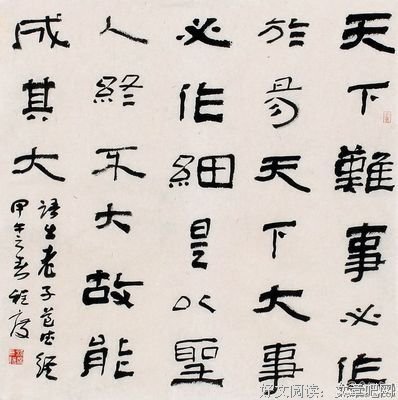 天下難事必作
於易天下大事
必作細是以聖
人終不大故能
成其大
語出老子道德經
甲午之春
好文阅读：文章吧网